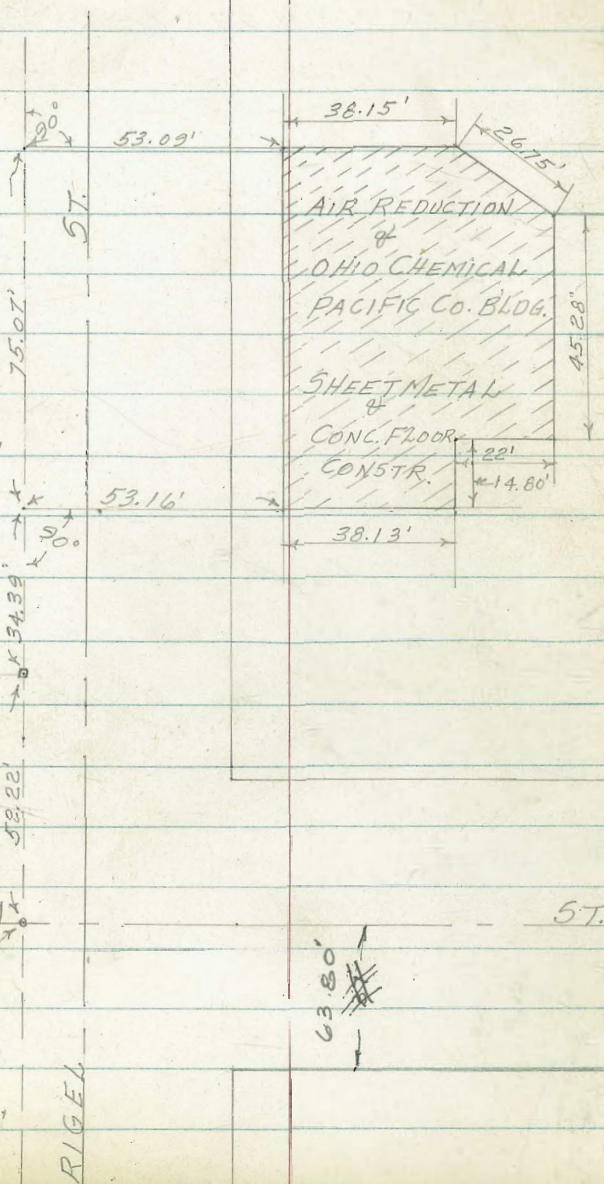 90°
53.09'
38.15'
26.75'
ST.
75.07'
AIR REDUCTION
&
OHIO CHEMICAL
PACIFIC CO. BLDG.
45.28'
SHEET METAL
&
CONC. FLOOR
CONSTR.
22'
14.80'
53.16'
90°
38.13'
34.39'
52.22'
ST.
63.80'
RIGEL